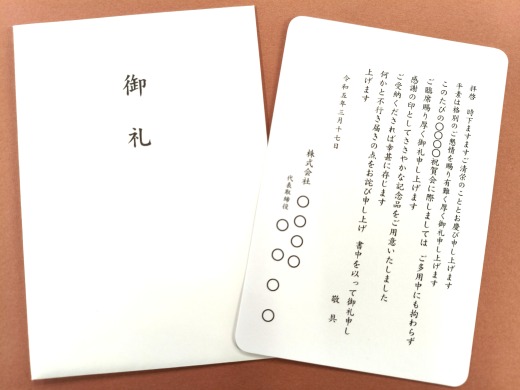 御礼
拝啓　時下ますますご清栄のこととお慶び申し上げます
平素は格別のご懇情を賜り有難く厚く御礼申し上げます
このたびの〇〇〇〇祝賀会に際しましては　ご多用中にも拘わらず
ご臨席賜り厚く御礼申し上げます
感謝の印としてささやかな記念品をご用意いたしました
ご受納くだされば幸甚に存じます
何かと不行き届きの点をお詫び申し上げ　書中を以って御礼申し
上げます
敬具
令和五年三月十七日
株式会社　〇〇〇〇
代表取締役　〇〇　〇〇